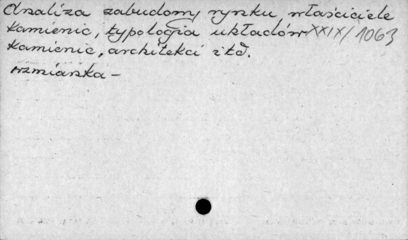 Analiza zabudowy rynku właściciele
kamienic, typologia układów XXIX/1063
kamienic, architekci itd.
wzmianka –